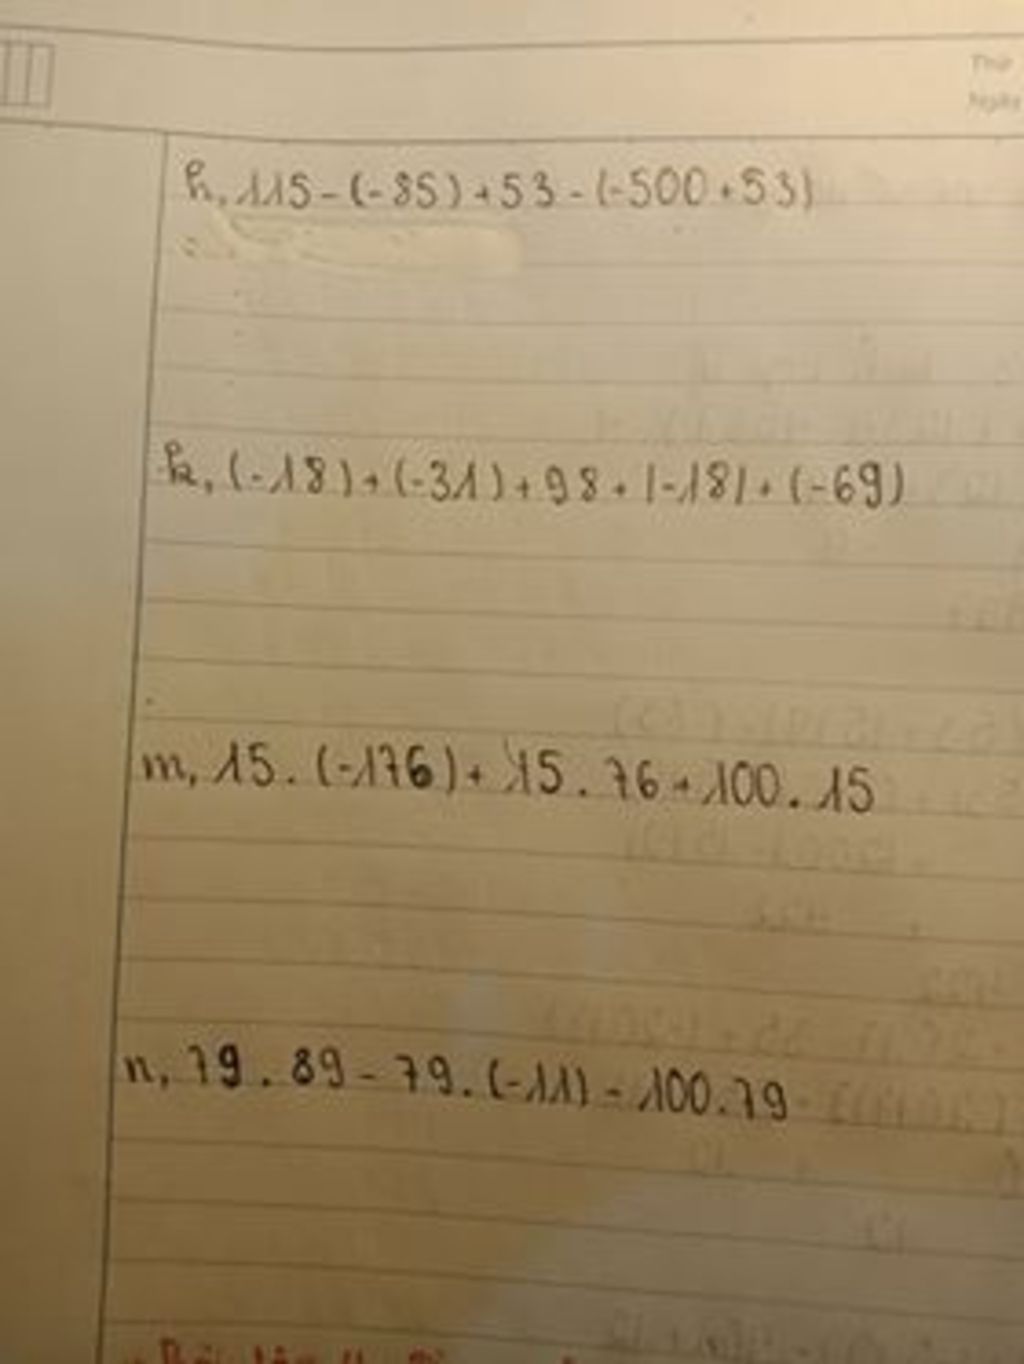 Thứ
Ngày
h, 115 - (-85) + 53 - (-500 + 53)
k, (-18) + (-31) + 98 + |-18| + (-69)
m, 15 . (-176) + 15 . 76 + 100 . 15
n, 79 . 89 - 79 . (-11) - 100 . 79